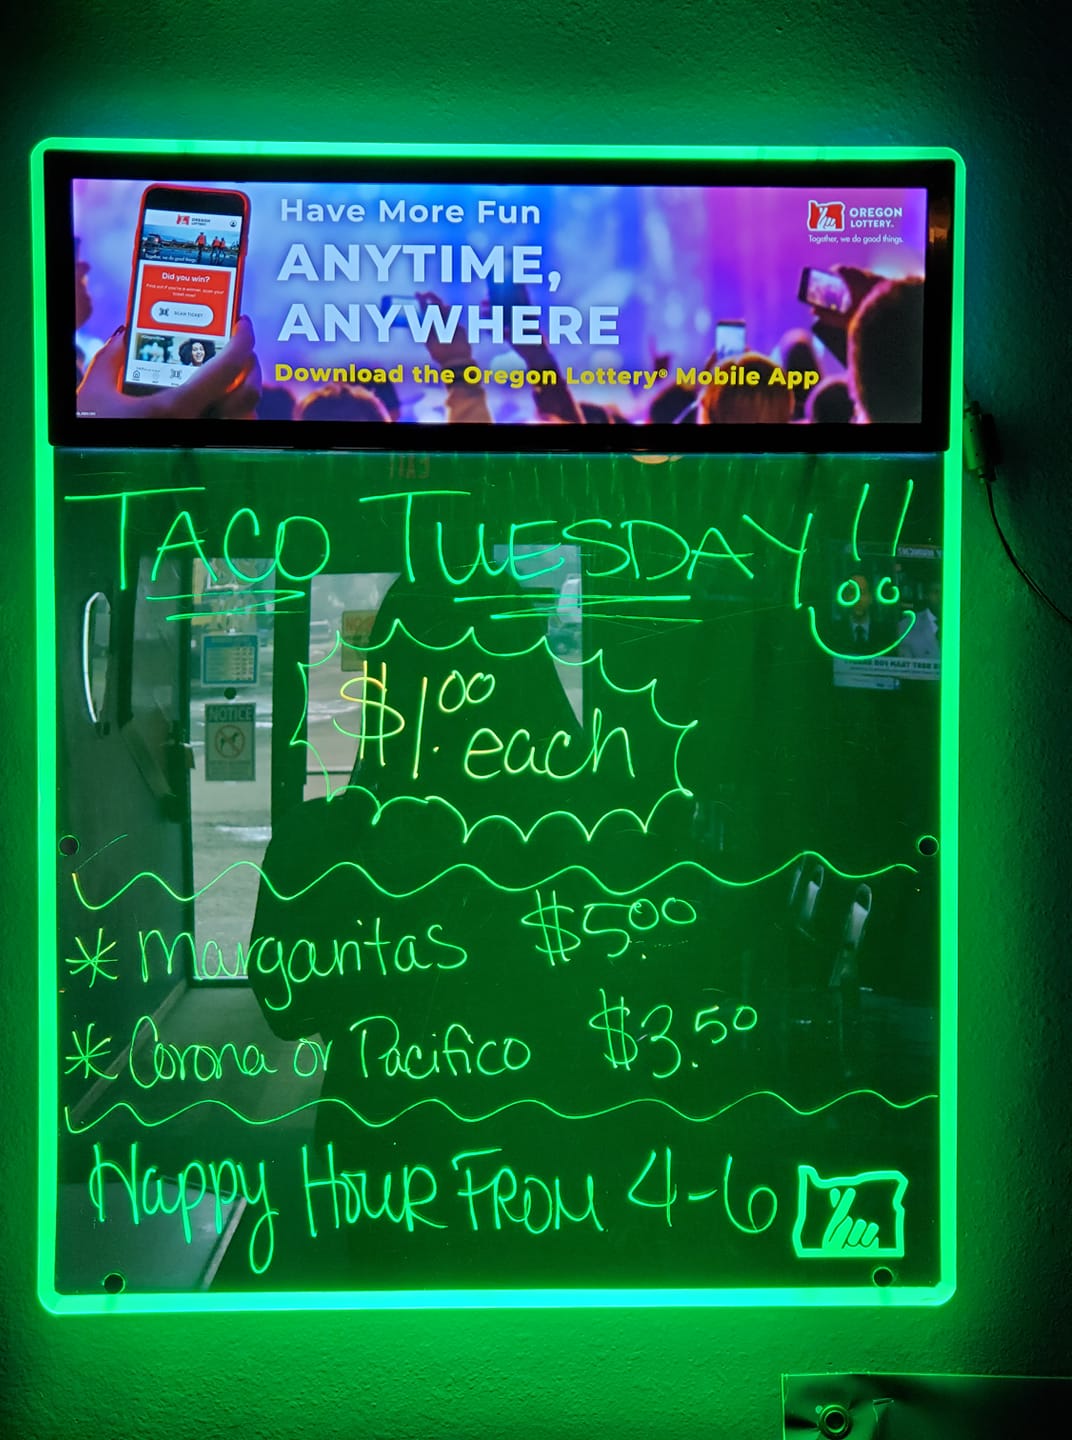 Have More Fun
ANYTIME,
ANYWHERE
Download the Oregon Lottery® Mobile App
OREGON
LOTTERY™
Together, we do good things.
OREGON
LOTTERY
Together, we do good things.
Did you win?
SCAN TICKET
TACO TUESDAY!!
$1.00 each
NOTICE
* Margaritas $5.00
* Corona or Pacifico $3.50
Happy Hour From 4-6